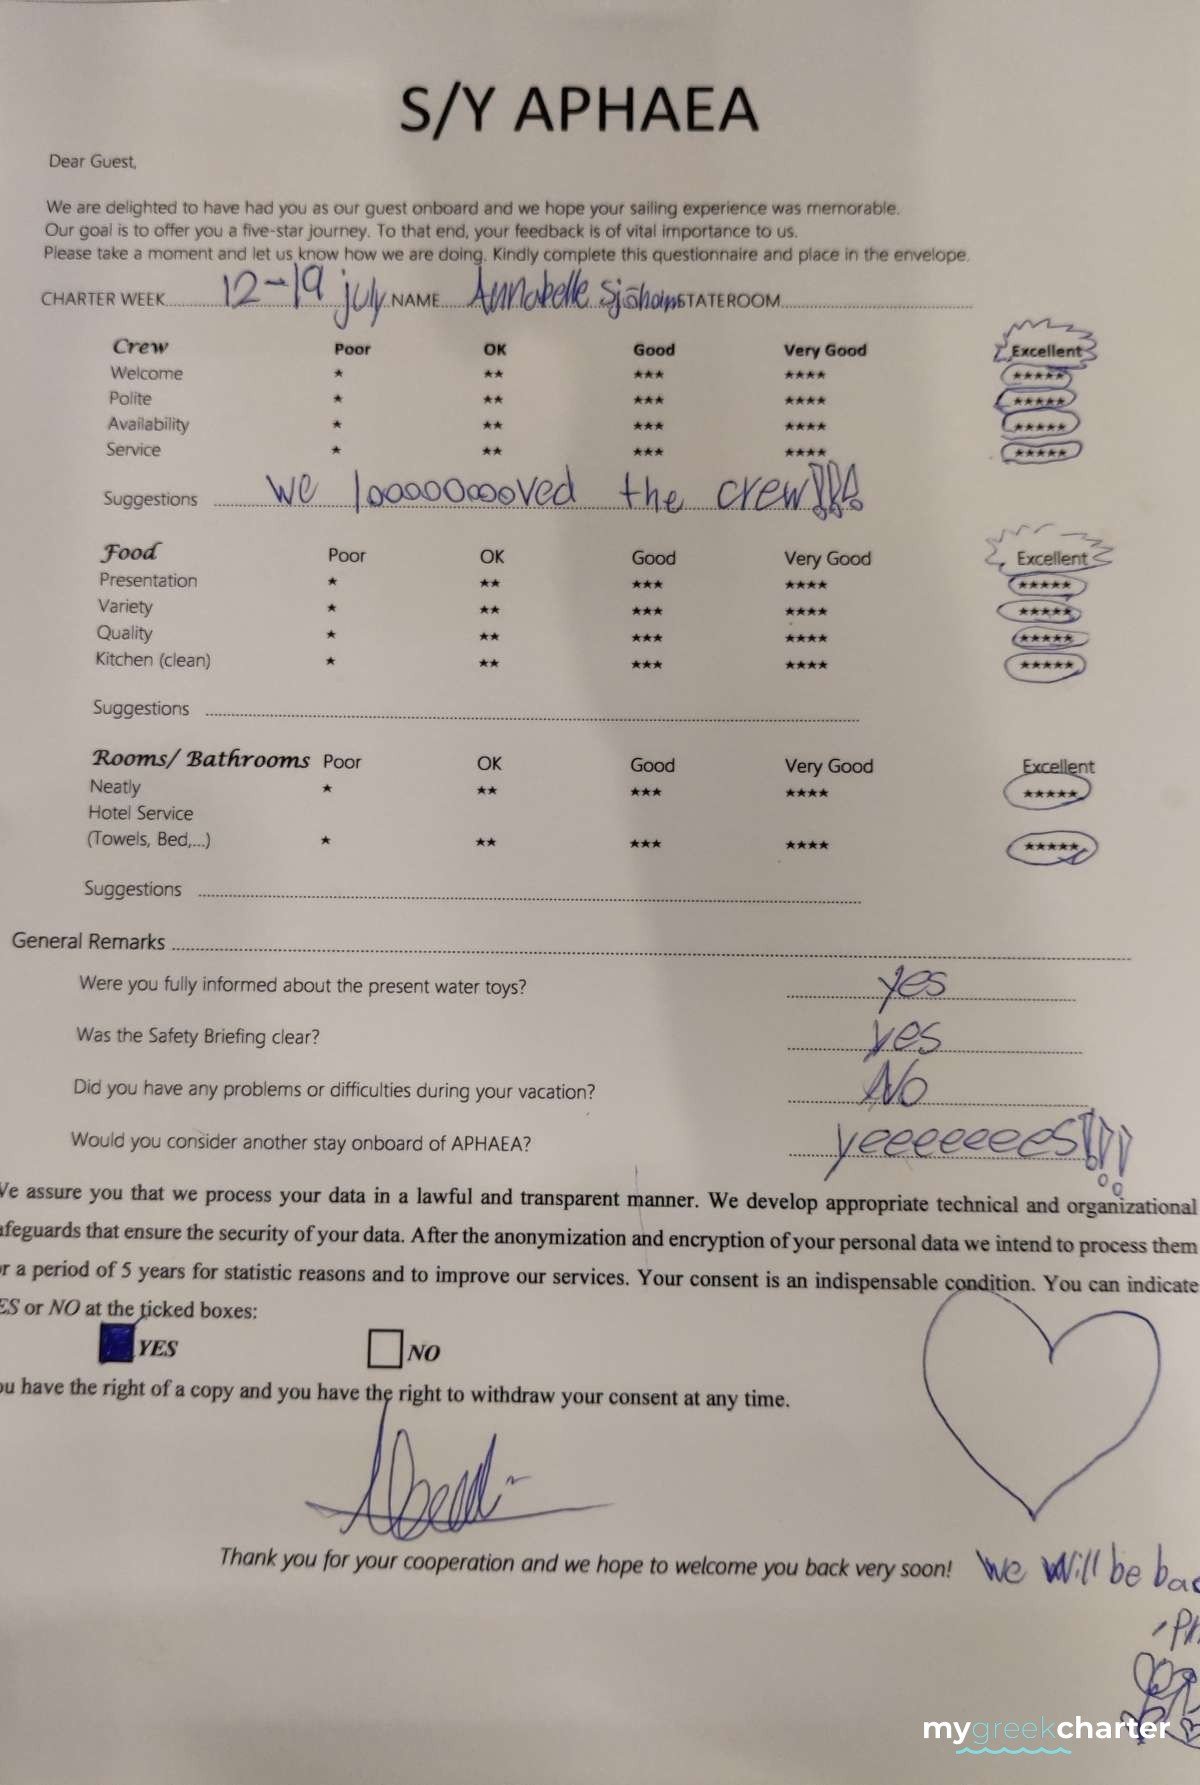 S/Y APHAEA
Dear Guest,
We are delighted to have had you as our guest onboard and we hope your sailing experience was memorable.
Our goal is to offer you a five-star journey. To that end, your feedback is of vital importance to us.
Please take a moment and let us know how we are doing. Kindly complete this questionnaire and place in the envelope.
CHARTER WEEK 12-19 july NAME Annabelle STATEROOM
Crew Poor OK Good Very Good Excellent
Welcome * ** *** **** *****
Polite * ** *** **** *****
Availability * ** *** **** *****
Service * ** *** **** *****
Suggestions We looooooooved the crew!!!
Food Poor OK Good Very Good Excellent
Presentation * ** *** **** *****
Variety * ** *** **** *****
Quality * ** *** **** *****
Kitchen (clean) * ** *** **** *****
Suggestions
Rooms/ Bathrooms Poor OK Good Very Good Excellent
Neatly * ** *** **** *****
Hotel Service
(Towels, Bed,...) * ** *** **** *****
Suggestions
General Remarks
Were you fully informed about the present water toys? yes
Was the Safety Briefing clear? yes
Did you have any problems or difficulties during your vacation? No
Would you consider another stay onboard of APHAEA? yeeeeeees!!!
We assure you that we process your data in a lawful and transparent manner. We develop appropriate technical and organizational
afeguards that ensure the security of your data. After the anonymization and encryption of your personal data we intend to process them
or a period of 5 years for statistic reasons and to improve our services. Your consent is an indispensable condition. You can indicate
ES or NO at the ticked boxes:
YES NO
ou have the right of a copy and you have the right to withdraw your consent at any time.
Thank you for your cooperation and we hope to welcome you back very soon! We will be bac
mygreekcharter